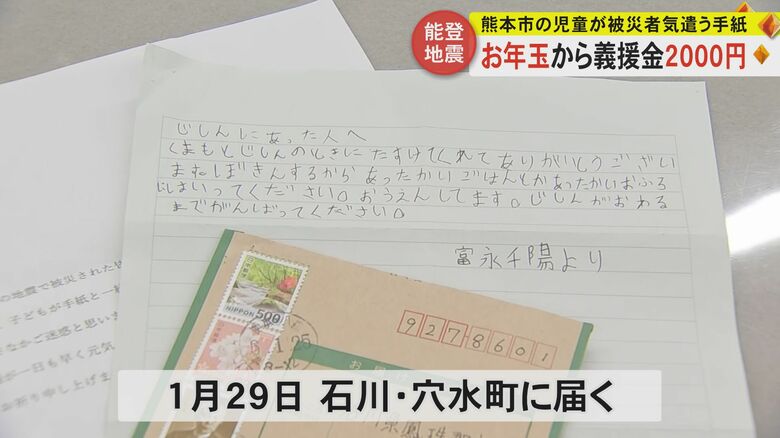 能登
地震
熊本市の児童が被災者気遣う手紙
お年玉から義援金2000円
じしんにあった人へ
くまもとじしんのときにたすけてくれてありがとうござい
ますねばきんするからあったかいごはんとかあったかいおふろ
にはいってください。おうえんしてます。じしんがおわる
までがんばってください。
富永千陽より
の地震で被災された
子どもが手紙と一
なかご迷惑と思いま
が一日も早く元気
お祈り申し上げま
NIPPON 500
1.25
9278601
1月29日 石川・穴水町に届く